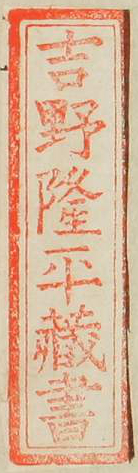 吉野隆平藏書